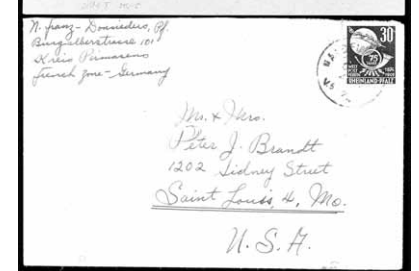 N. Franz - Donsieders, Pf.
Burgalberstrasse 101
Kreis Pirmasens
French Zone - Germany
30
75
RHEINLAND-PFALZ
Mr. & Mrs.
Peter J. Brandt
1202 Sidney Street
Saint Louis, 4, Mo.
U. S. A.